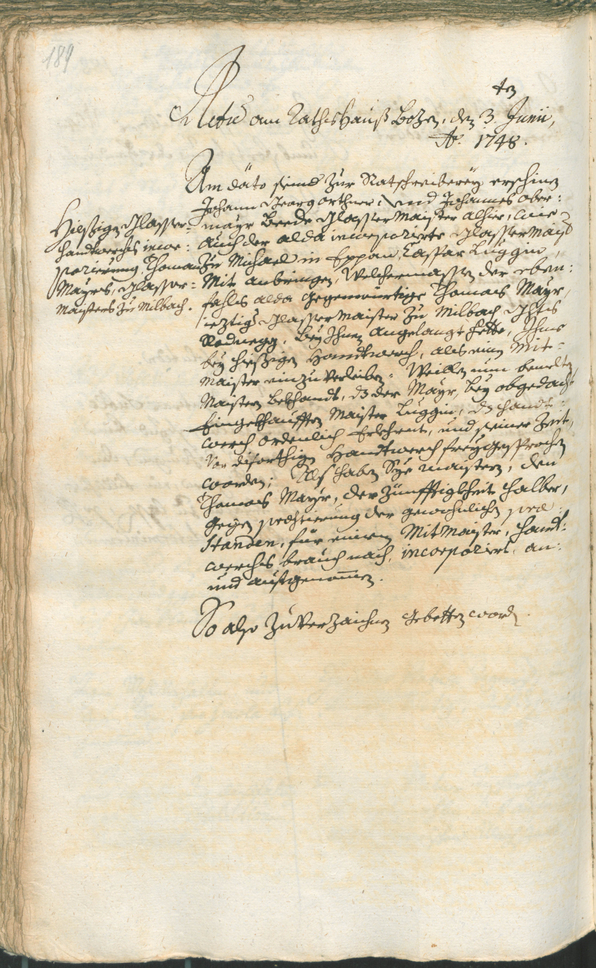 189
Actum am Rathshauß Bozen, den 3.ten Junii,
Ao: 1748.
Hiesigen Glasser-
handtwerchs incor-
porierung Thoman
Mayrs, Glasser-
Maisters zu Milbach.
Am dato seind zur Ratschreiberey erschinen
Johann Georg orthner, und Johannes ober-
mayr Beede Glassermaister alhier, wie
auch der alda incorporierte Glassermaister
zu St. Michael in Eppan, Caspar Luggin,
Mit anbringen, Welchermassen der eben-
fahls alda gegenwürtige Thomas Mayr,
iezige Glassermaister zu Milbach Gerichts
Rodnegg, bey Ihnen angelangt hette, Ihme
bey hiesigen Handtwerch, als einen Mit-
maister einzuverleiben. Weillen nun bemelten
Maistern bekhandt, dz der Mayr, bey obgedacht
Eingekhaufften Maister Luggin, dz handt-
werch ordenlich Erlehrnt, und seiner Zeit,
Von disorthigen Handtwerch freygesprochen
worden; Als haben Sye maistern, den
Thomas Mayr, der Zünfftigkheit halber,
gegen praestierung der gewohnlichen prae-
standen, für einen Mitmaister, handt-
werchs brauch nach, incorporiert, an-
und aufgenomen.
So also zuverzaichnen gebetten worden.